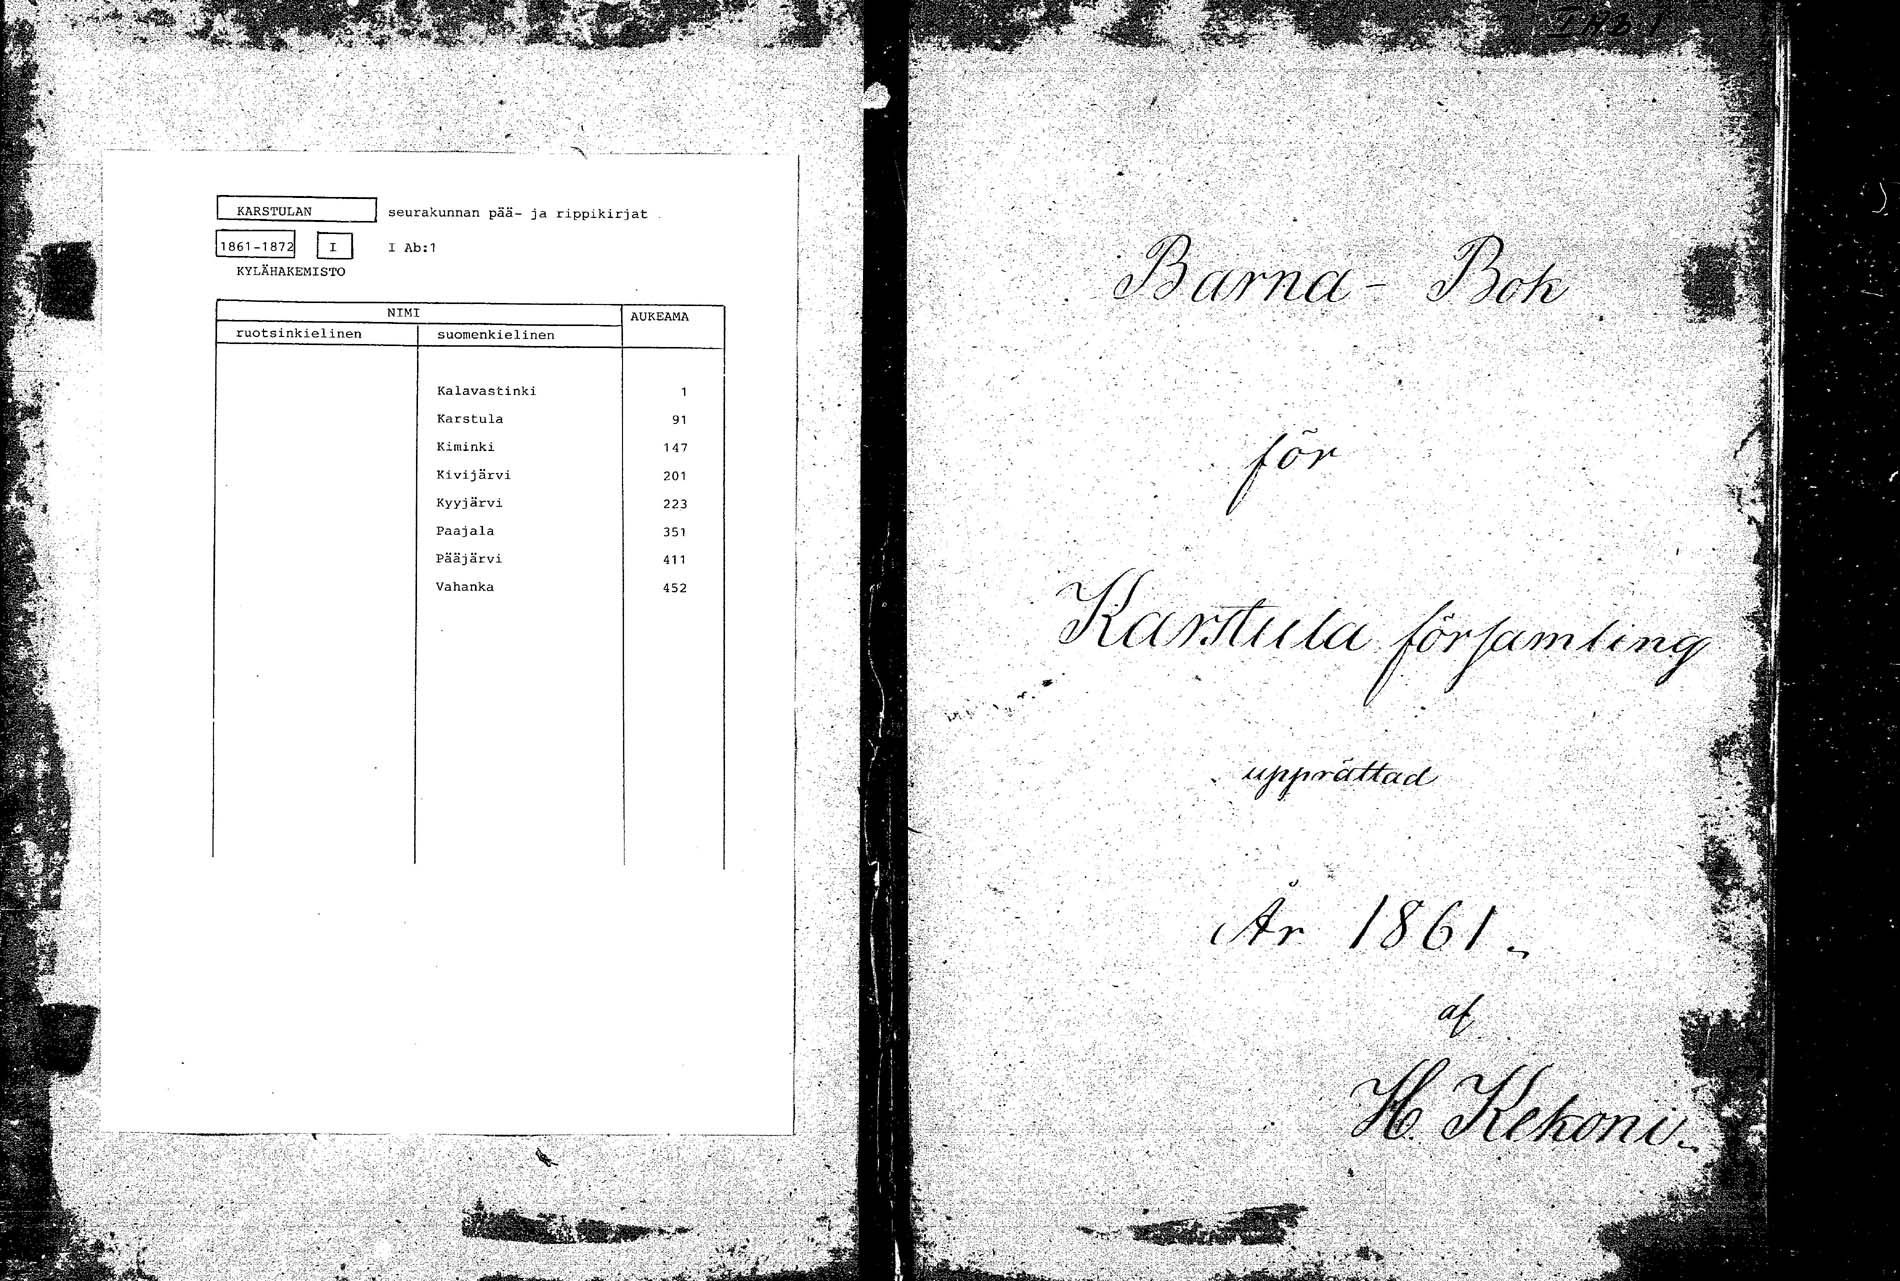 KARSTULAN seurakunnan pää- ja rippikirjat
1861-1872 I I Ab:1
KYLÄHAKEMISTO
NIMI AUKEAMA
ruotsinkielinen suomenkielinen
Kalavastinki 1
Karstula 91
Kiminki 147
Kivijärvi 201
Kyyjärvi 223
Paajala 351
Pääjärvi 411
Vahanka 452
Barna - Bok
för
Karstula församling
upprättad
År 1861.
af
H. Kekoni.